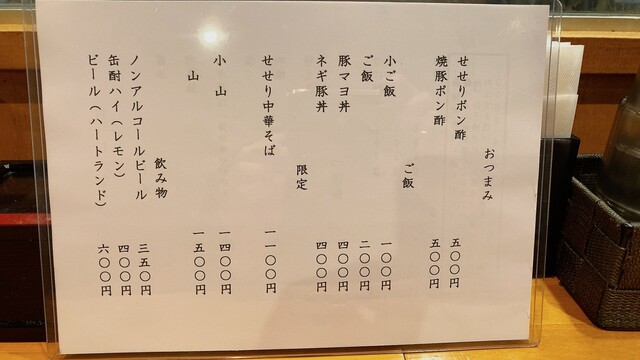 おつまみ
せせりポン酢 五〇〇円
焼豚ポン酢 五〇〇円
ご飯
小ご飯 一〇〇円
ご飯 二〇〇円
豚マヨ丼 四〇〇円
ネギ豚丼 四〇〇円
限定
せせり中華そば 一一〇〇円
小山 一四〇〇円
山 一五〇〇円
飲み物
ノンアルコールビール 三五〇円
缶酎ハイ（レモン） 四〇〇円
ビール（ハートランド） 六〇〇円